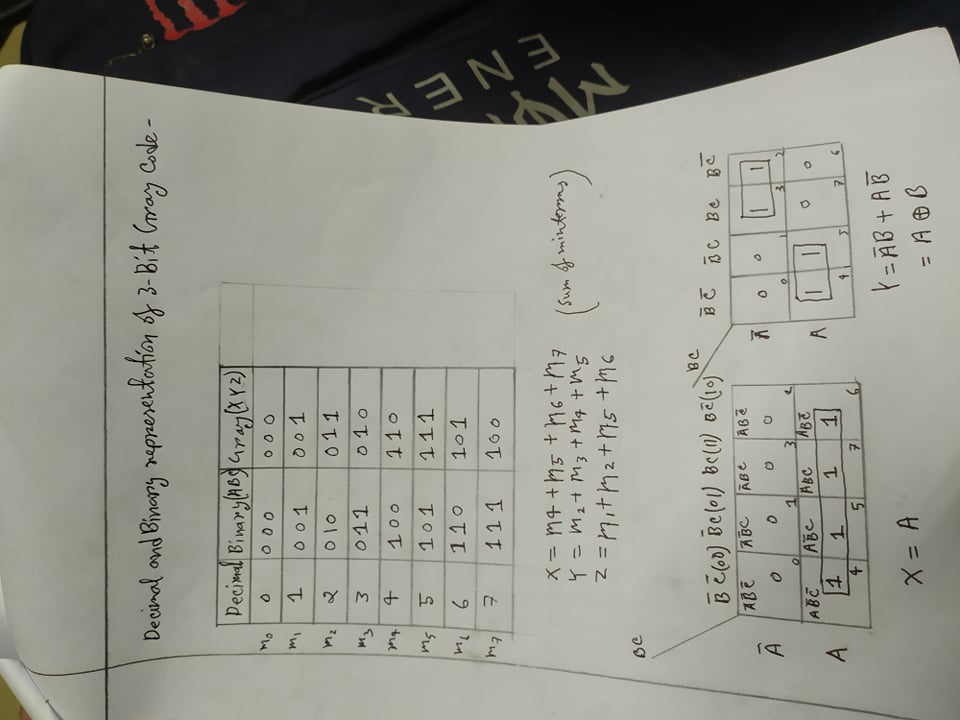 Decimal and Binary representation of 3-Bit Gray Code-
Decimal Binary(ABC) Gray(XYZ)
m₀ 0 000 000
m₁ 1 001 001
m₂ 2 010 011
m₃ 3 011 010
m₄ 4 100 110
m₅ 5 101 111
m₆ 6 110 101
m₇ 7 111 100
X = m4 + m5 + m6 + m7
Y = m2 + m3 + m4 + m5 (Sum of minterms)
Z = m1 + m2 + m5 + m6
BC
B̅C̅(00) B̅C(01) BC(11) BC̅(10)
A̅B̅C̅ A̅B̅C A̅BC A̅BC̅
A̅ 0 0 0 0
0 1 3 2
AB̅C̅ AB̅C ABC ABC̅
A 1 1 1 1
4 5 7 6
X = A
BC
B̅C̅ B̅C BC BC̅
A̅ 0 0 1 1
0 1 3 2
A 1 1 0 0
4 5 7 6
Y = A̅B + AB̅
= A ⊕ B
ENER